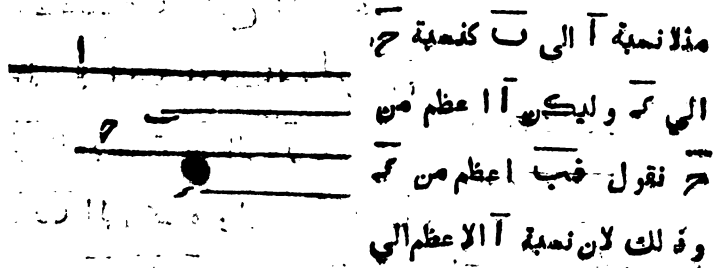 مثلا نسبة آ الى ب كنسبة ح
الي د وليكن آ اعظم من
ح نقول فب اعظم من د
وذلك لان نسبة آ الاعظم الي
ا
ب
ح
د